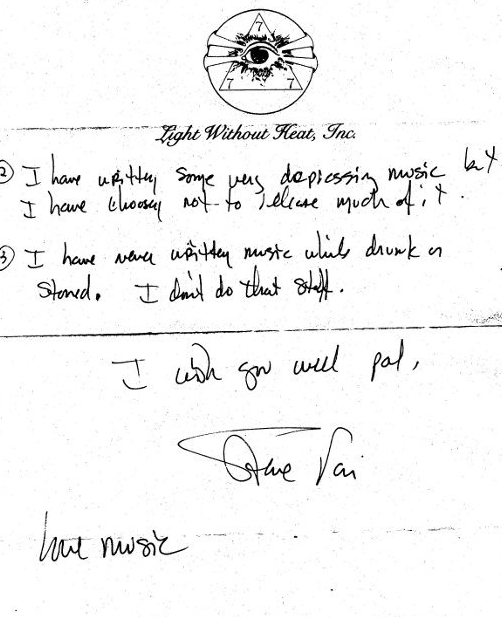 7
7 7
Light Without Heat, Inc.
② I have written some very depressing music but
I have choosen not to release much of it.
③ I have never written music while drunk or
stoned. I don't do that stuff.
I wish you well pal,
Steve Vai
love music